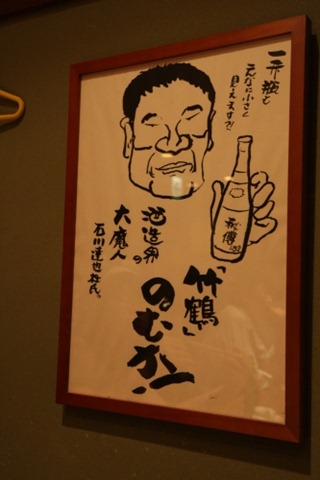 一升瓶も
こんなに小さく
見えます?!
秘傳
酒造界の
大魔人
石川達也杜氏。
「竹鶴」
のむカー!